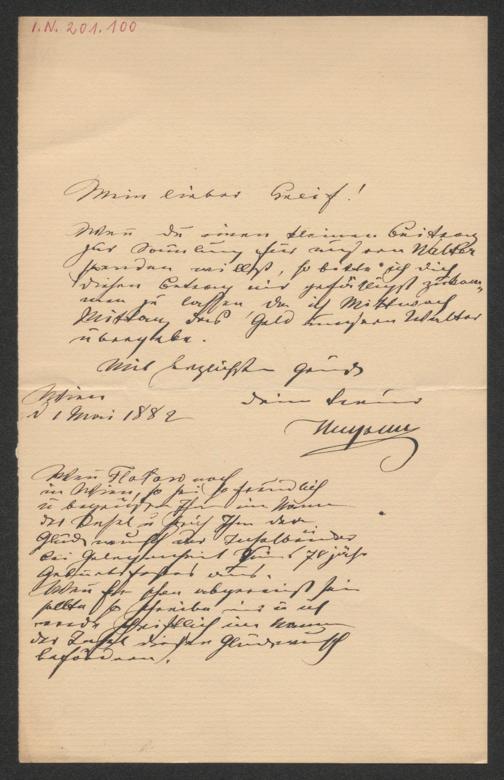 I.N. 201.100
Mein lieber Greif!
Wenn du einen kleinen Beitrag
zur Samlung für unsern Walter
spenden willst, so bitte ich dich
diesen Betrag mir gefälligst zukom-
men zu lassen da ich Mittwoch
Mittag das Geld unsern Walter
übergebe.
Mit herzlichsten Gruß
Wien dein treuer
d 1 Mai 1882
Wenn Flotow noch
in Wien, so sei so freundlich
u begrüße Ihn im Namen
der Insel u sprich Ihm den
Glückwunsch der Inselbrüder
bei Gelegenheit seines 70 jähr
Geburtsfestes aus.
Wenn Er schon abgereist sein
sollte so schreibe mir u ich
werde schriftlich im Namen
der Insel diesen Glückwunsch
befördern.